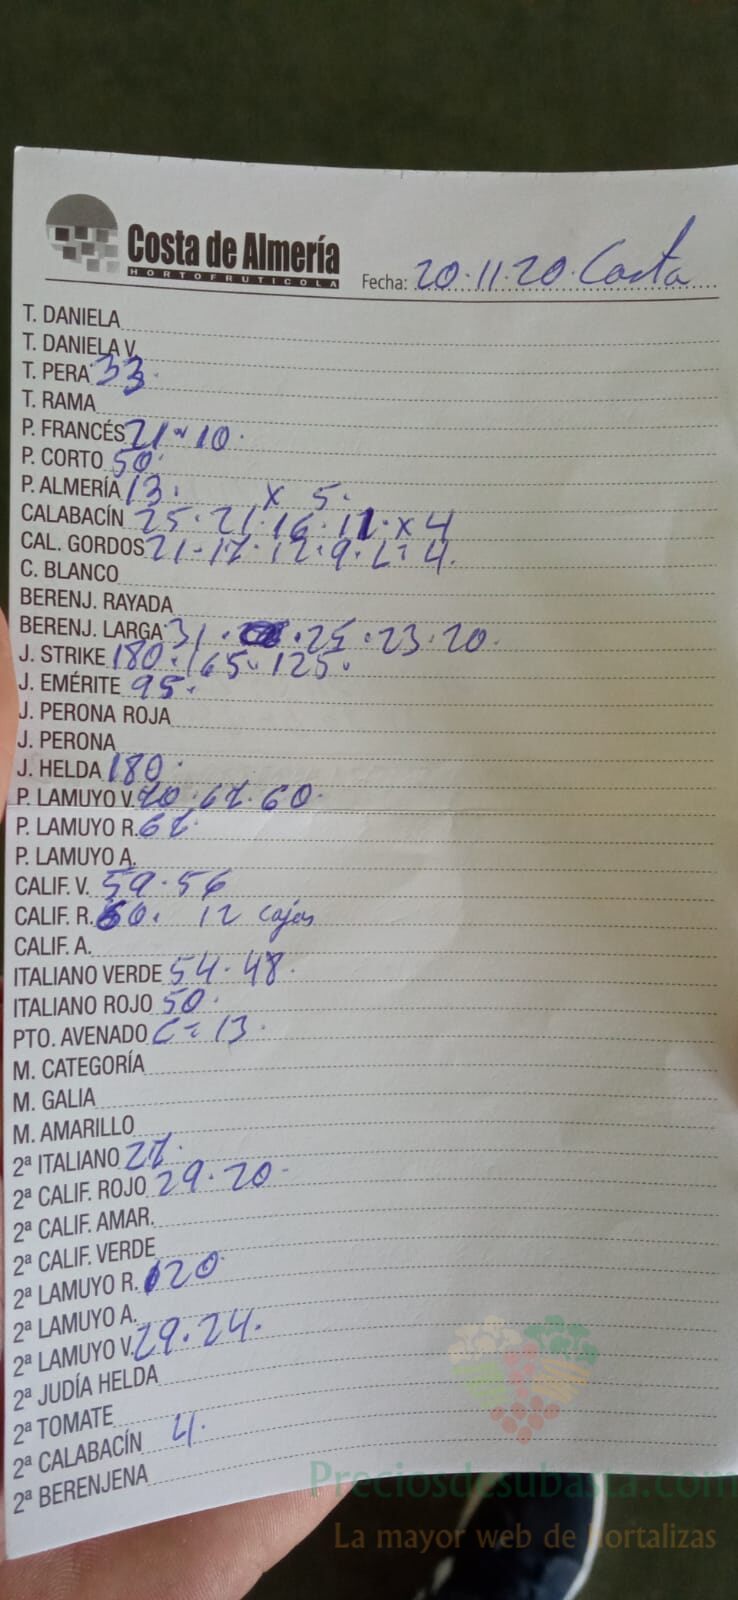 Costa de Almería
HORTOFRUTICOLA
Fecha: 20.11.20. Costa
T. DANIELA
T. DANIELA V.
T. PERA 33.
T. RAMA
P. FRANCÉS 21 10.
P. CORTO 50.
P. ALMERÍA 13.
x 5.
CALABACÍN 25.21.16.11.x4
CAL. GORDOS 21-17.12.9.L=4.
C. BLANCO
BERENJ. RAYADA
BERENJ. LARGA 31. .25.23.20.
J. STRIKE 180.165.125.
J. EMÉRITE 95.
J. PERONA ROJA
J. PERONA
J. HELDA 180.
P. LAMUYO V. 70.67.60.
P. LAMUYO R. 67.
P. LAMUYO A.
CALIF. V. 59.56
CALIF. R. 60. 12 cajas
CALIF. A.
ITALIANO VERDE 54.48.
ITALIANO ROJO 50.
PTO. AVENADO C=13.
M. CATEGORÍA
M. GALIA
M. AMARILLO
2ª ITALIANO 27.
2ª CALIF. ROJO 29.20.
2ª CALIF. AMAR.
2ª CALIF. VERDE
2ª LAMUYO R. 20.
2ª LAMUYO A.
2ª LAMUYO V. 29.24.
2ª JUDÍA HELDA
2ª TOMATE
2ª CALABACÍN 4.
2ª BERENJENA
Preciosdesubasta.com
La mayor web de hortalizas